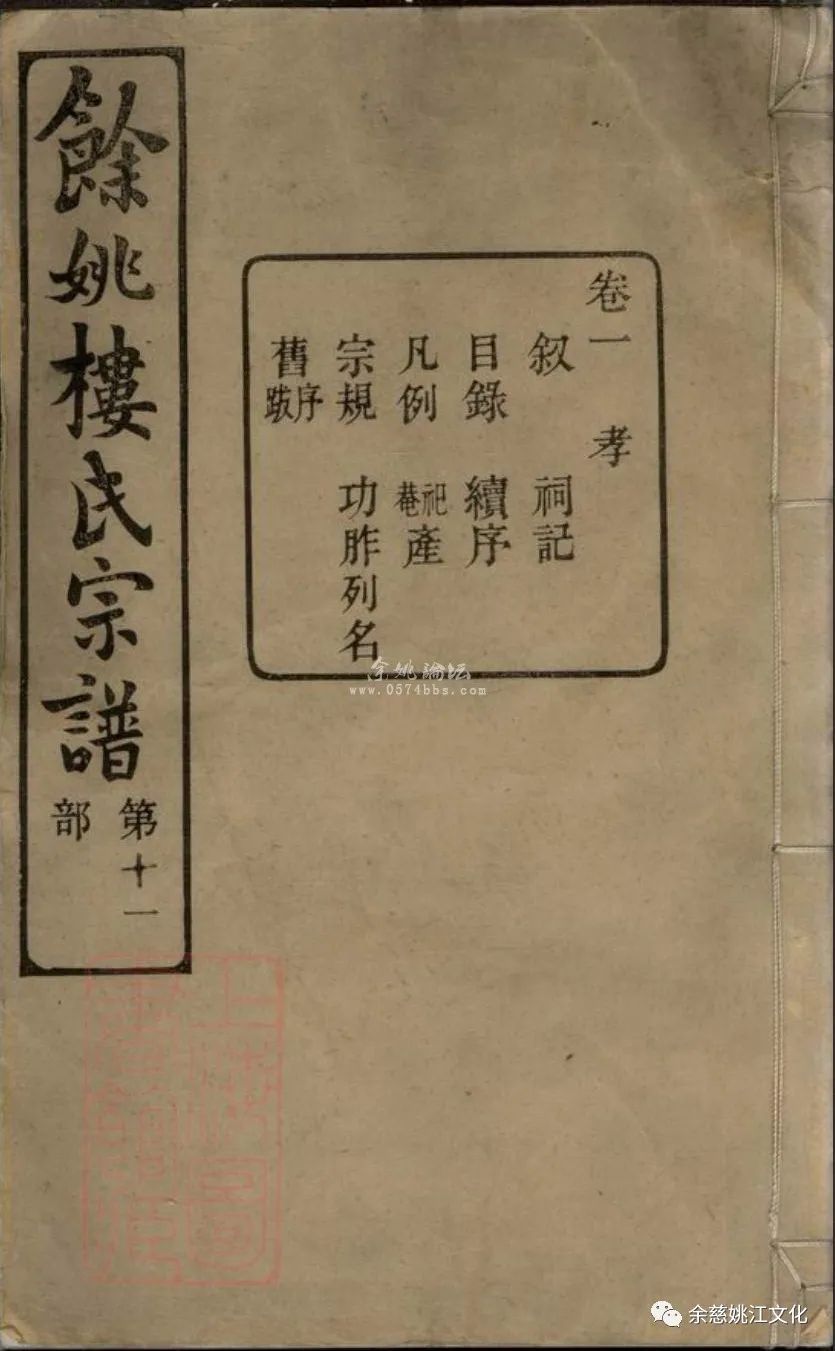 餘姚樓氏宗譜
第十一
部
卷一 孝
叙 祠記
目錄 續序
凡例 祀菴產
宗規 功胙列名
舊序跋
余姚论坛
www.0574bbs.com
上海圖書館藏
余慈姚江文化